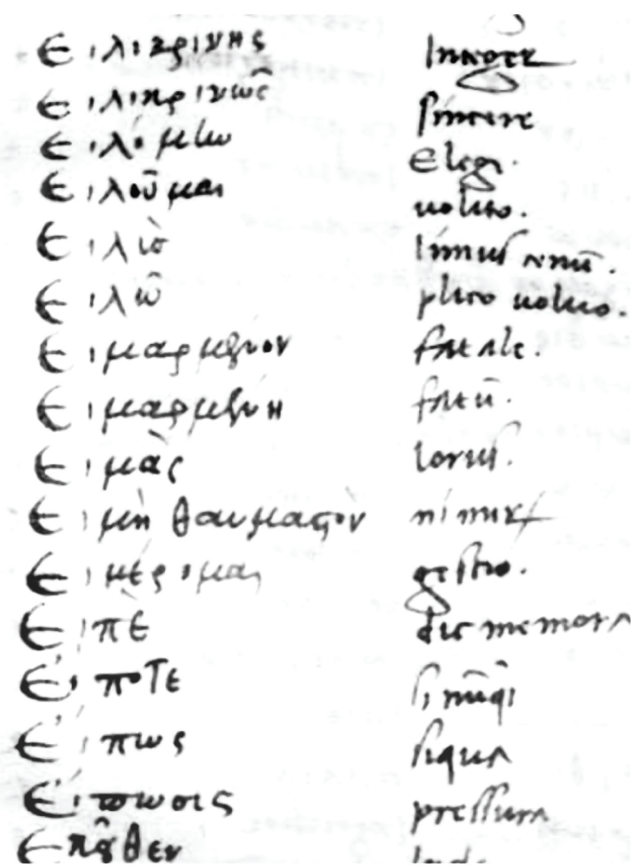 Ειλικρινης Integer
Ειλικρινῶς sincere
Ειλόμην Elegi.
Ειλοῦμαι uoluo.
Ειλὺσ limus cenū.
Ειλῶ plico uoluo.
Ειμαρμένον fatale.
Ειμαρμένη fatū.
Ειμὰς lorus.
Ειμὴ θαυμαστὸν nimir
Ειμέρομαι gestio.
Ειπὲ dic memora
Εἴποτε si nūqi
Εἴπως siqua
Εἴπωσις pressura
Επῶθεν